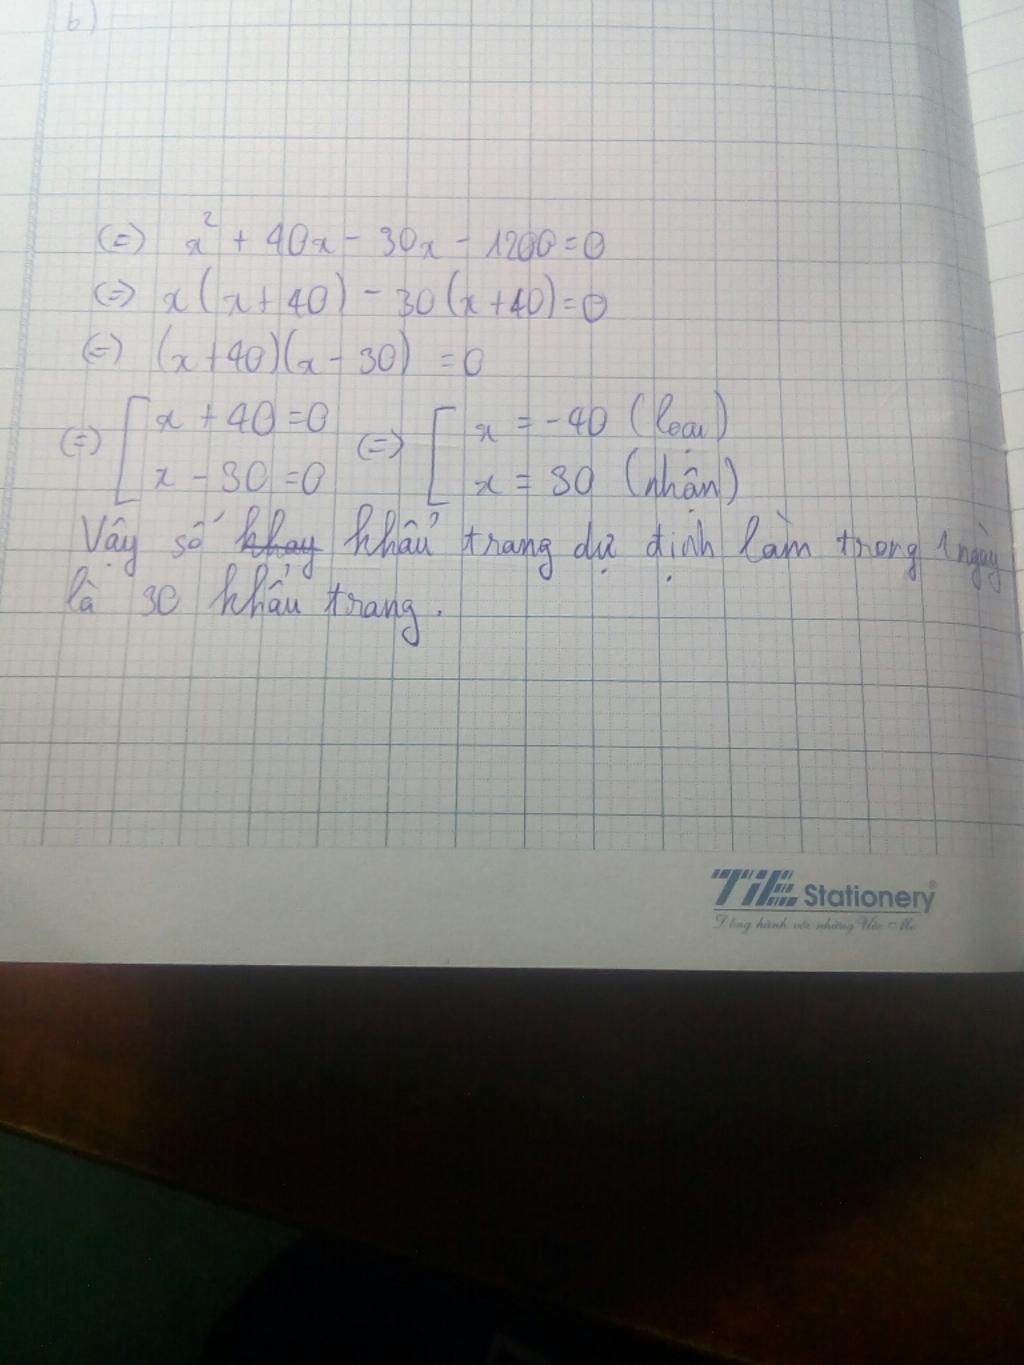 b)
(=) x² + 40x - 30x - 1200 = 0
(=) x(x + 40) - 30(x + 40) = 0
(=) (x + 40)(x - 30) = 0
(=) [ x + 40 = 0 (=) [ x = -40 (loại)
x - 30 = 0 x = 30 (nhận)
Vậy số khay khẩu trang dự định làm trong 1 ngày
là 30 khẩu trang.
TiE Stationery®
Đồng hành với những Ước Mơ